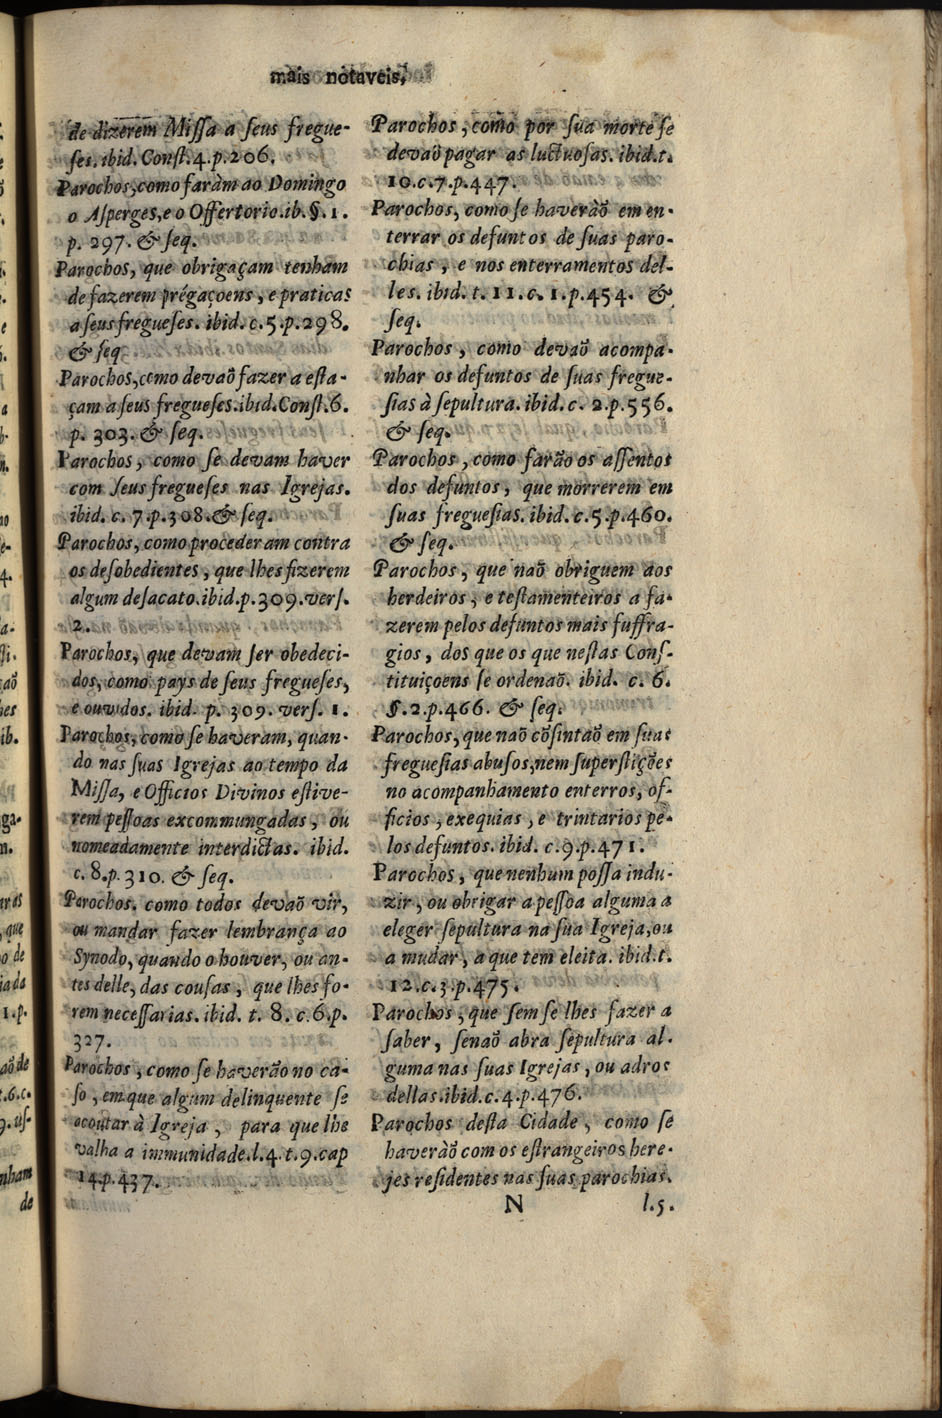 mais notaveis.
de dizerem Miſſa a ſeus fregue-
ſes. ibid. Conſt. 4. p. 206.
Parochos, como faràm ao Domingo
o Aſperges, e o Offertorio. ib. §. 1.
p. 297. & ſeq.
Parochos, que obrigaçam tenham
de fazerem prégaçoens, e praticas
a ſeus fregueſes. ibid. c. 5. p. 298.
& ſeq
Parochos, como devaõ fazer a eſta-
çam a ſeus fregueſes. ibid. Conſt. 6.
p. 303. & ſeq.
Parochos, como ſe devam haver
com ſeus fregueſes nas Igrejas.
ibid. c. 7. p. 308. & ſeq.
Parochos, como procederam contra
os deſobedientes, que lhes fizerem
algum deſacato. ibid. p. 309. verſ.
2.
Parochos, que devam ſer obedeci-
dos, como pays de ſeus fregueſes,
e ouvidos. ibid. p. 309. verſ. 1.
Parochos, como ſe haveram, quan-
do nas ſuas Igrejas ao tempo da
Miſſa, e Officios Divinos eſtive-
rem peſſoas excommungadas, ou
nomeadamente interdictas. ibid.
c. 8. p. 310. & ſeq.
Parochos. como todos devaõ vir,
ou mandar fazer lembrança ao
Synodo, quando o houver, ou an-
tes delle, das couſas, que lhes fo-
rem neceſſarias. ibid. t. 8. c. 6. p.
327.
Parochos, como ſe haverão no ca-
ſo, em que algum delinquente ſe
acoutar à Igreja, para que lhe
valha a immunidade. l. 4. t. 9. cap
14. p. 437.
Parochos, como por ſua morte ſe
devaõ pagar as luctuoſas. ibid. t.
10. c. 7. p. 447.
Parochos, como ſe haveràõ em en-
terrar os defuntos de ſuas paro-
chias, e nos enterramentos del-
les. ibid. t. 11. c. 1. p. 454. &
ſeq.
Parochos, como devaõ acompa-
nhar os defuntos de ſuas fregue-
ſias à ſepultura. ibid. c. 2. p. 556.
& ſeq.
Parochos, como farão os aſſentos
dos defuntos, que morrerem em
ſuas fregueſias. ibid. c. 5. p. 460.
& ſeq.
Parochos, que naõ obriguem aos
herdeiros, e teſtamenteiros a fa-
zerem pelos defuntos mais ſuffra-
gios, dos que os que neſtas Conſ-
tituiçoens ſe ordenaõ. ibid. c. 6.
§. 2. p. 466. & ſeq.
Parochos, que naõ cõſintaõ em ſuas
fregueſias abuſos, nem ſuperſtições
no acompanhamento enterros, of-
ficios, exequias, e trintarios pe-
los defuntos. ibid. c. 9. p. 471.
Parochos, que nenhum poſſa indu-
zir, ou obrigar a peſſoa alguma a
eleger ſepultura na ſua Igreja, ou
a mudar, a que tem eleita. ibid. t.
12. c. 3. p. 475.
Parochos, que ſem ſe lhes fazer a
ſaber, ſenaõ abra ſepultura al-
guma nas ſuas Igrejas, ou adros
dellas. ibid. c. 4. p. 476.
Parochos deſta Cidade, como ſe
haveràõ com os eſtrangeiros here-
jes reſidentes nas ſuas parochias.
N l. 5.